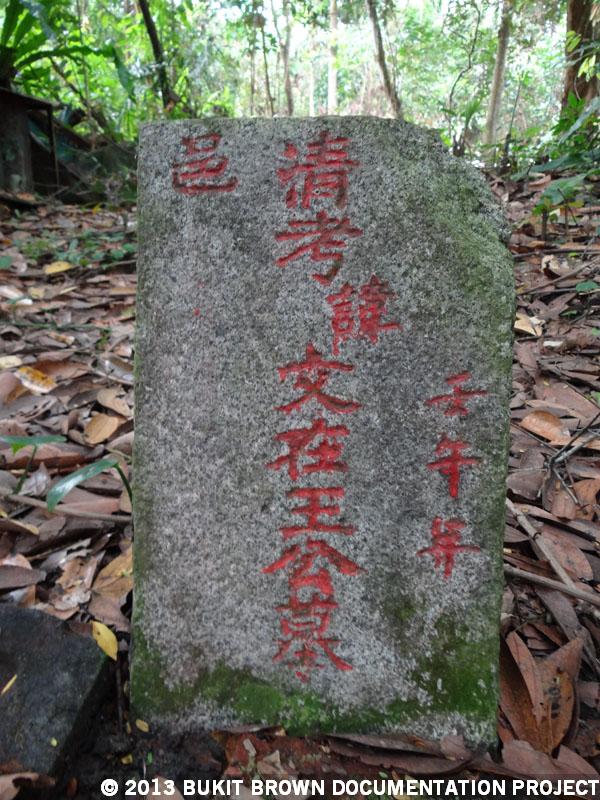 壬午
清考諱文在王公墓
邑
© 2013 BUKIT BROWN DOCUMENTATION PROJECT